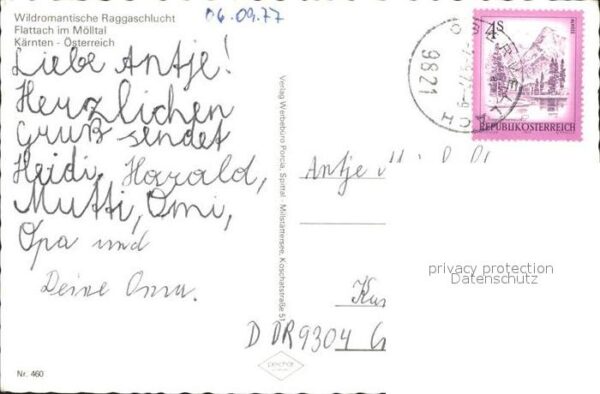 Wildromantische Raggaschlucht
Flattach im Mölltal
Kärnten - Österreich
06.09.77
Liebe Antje!
Herzlichen
Gruß sendet
Heidi, Harald,
Mutti, Omi,
Opa und
Deine Oma.
Nr. 460
Verlag Werbebüro Porcia, Spittal, Millstättersee, Koschatstraße 51
4S
REPUBLIK ÖSTERREICH
9821
Antje
privacy protection
Datenschutz
DDR 9304